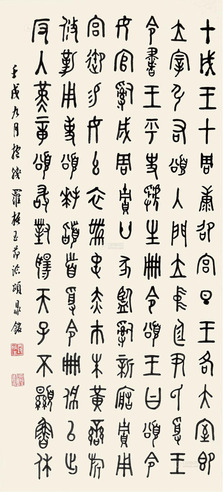 甲戌王才周康卲宮王各大室即
立宰右頌入門立中廷尹氏受王
令書王乎史虢生冊令頌王曰頌令
女官𤔲成周貯監𤔲新造貯用
宮御易女玄衣黹屯赤巿朱黃䜌
攸勒用事頌拜𩒨首受令冊
反入堇章頌敢對揚天子不顯魯休
壬戌九月羅振玉節臨頌鼎銘